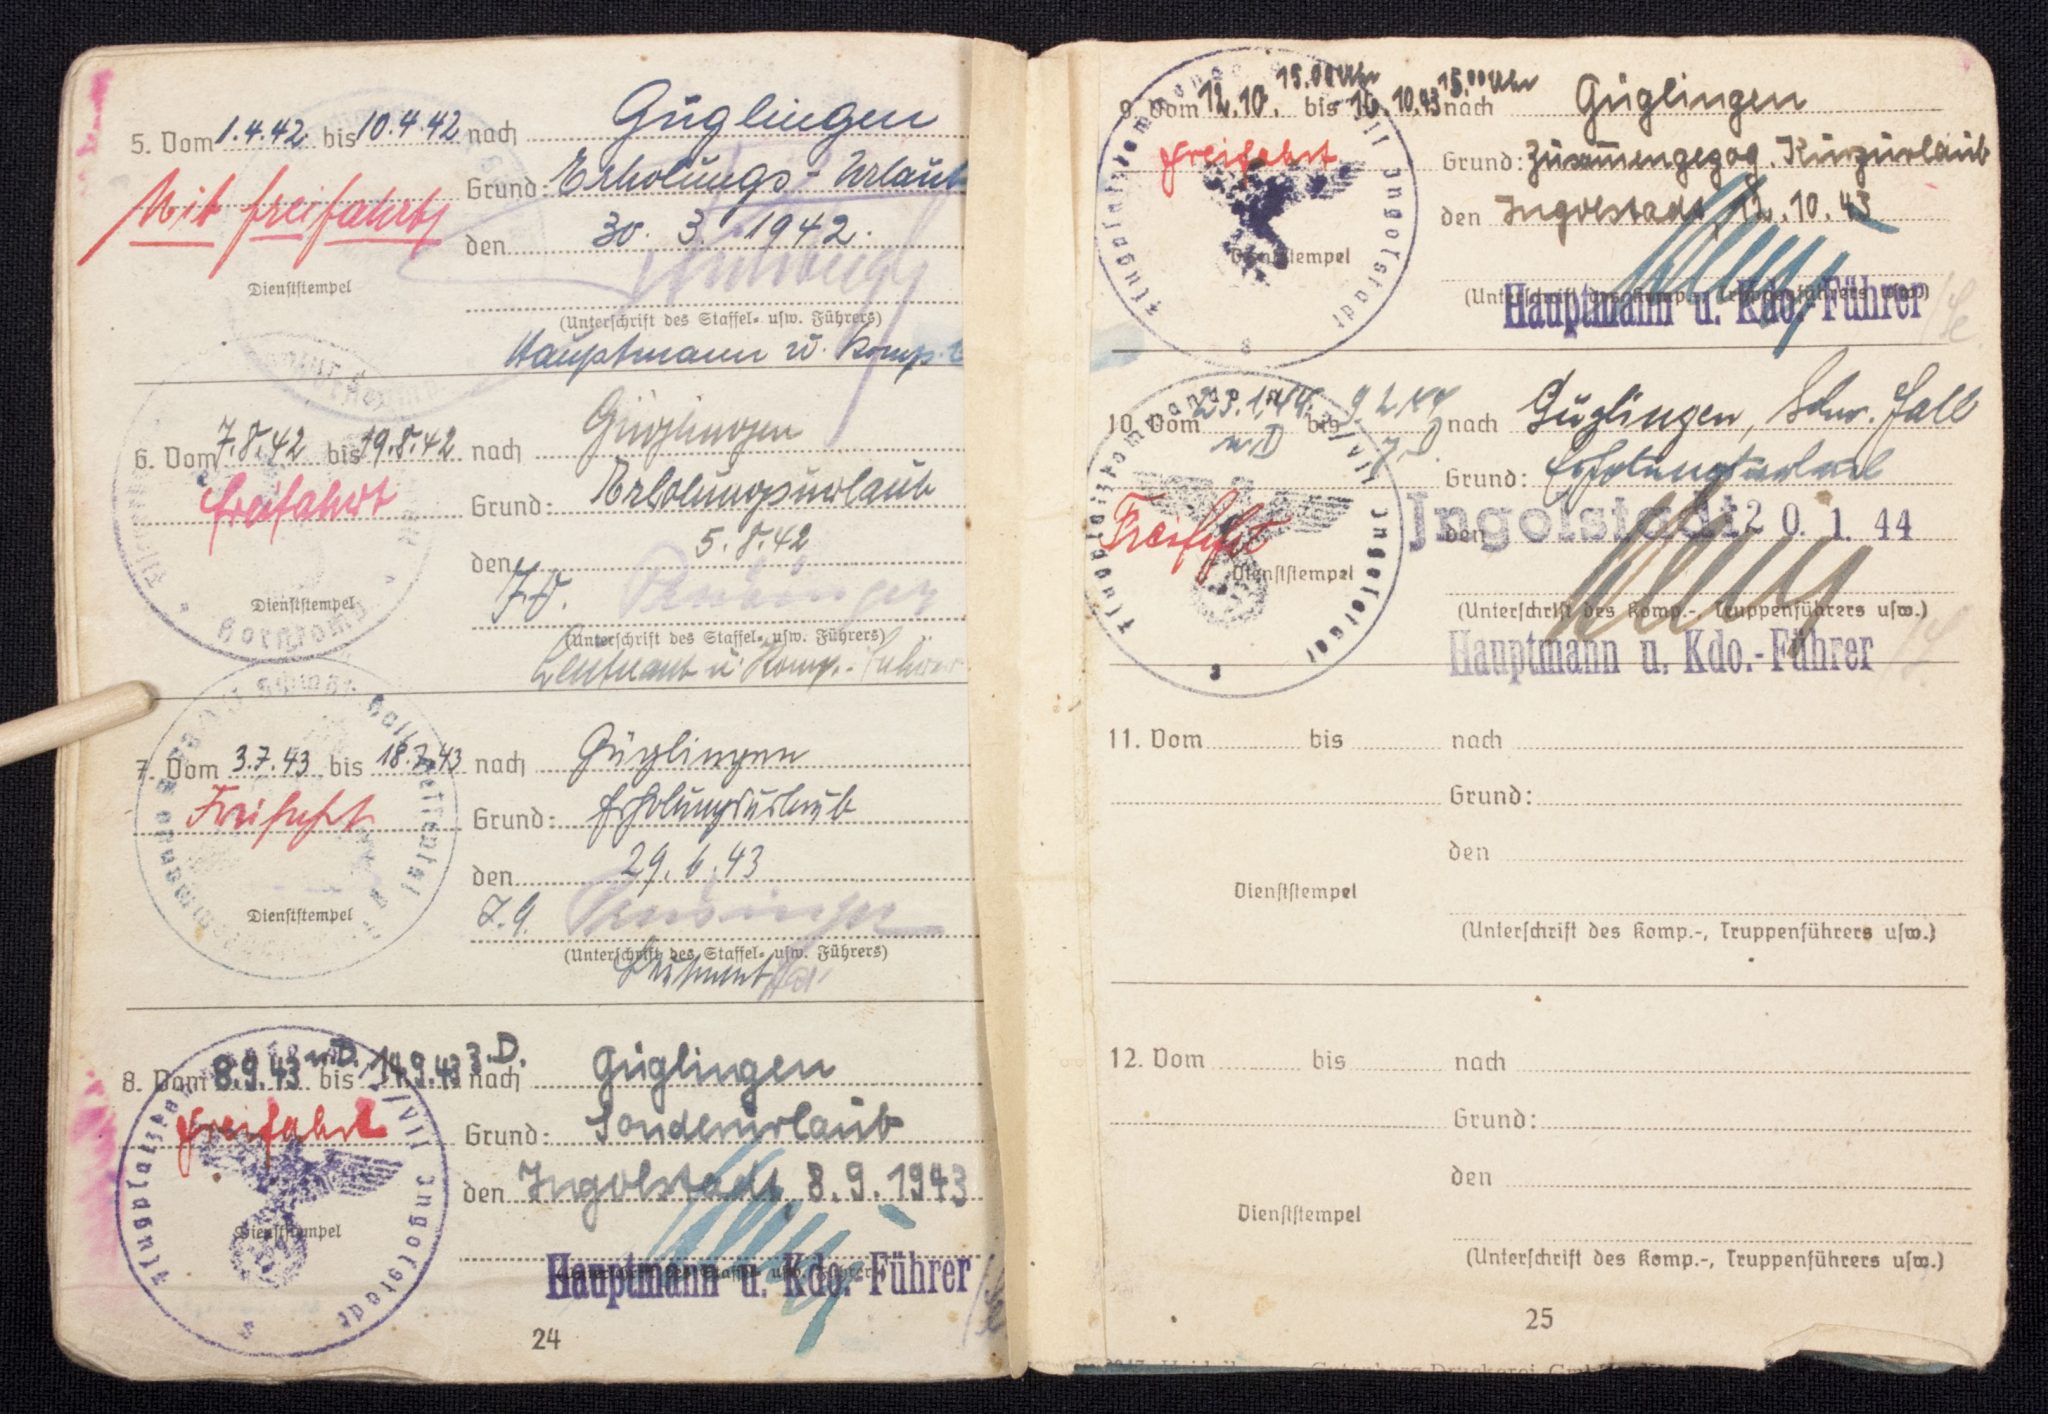 5. Vom 1.4.42 bis 10.4.42 nach Güglingen
Mit Freifahrt
Grund: Erholungs-Urlaub
den 30. 3. 1942.
Dienststempel
(Unterschrift des Staffel- usw. Führers)
Hauptmann u. Komp.
6. Vom 7.8.42 bis 19.8.42 nach Güglingen
Freifahrt
Grund: Erholungsurlaub
den 5.8.42
Dienststempel
(Unterschrift des Staffel- usw. Führers)
Leutnant u. Komp.-Führer
7. Vom 3.7.43 bis 18.7.43 nach Güglingen
Freifahrt
Grund: Erholungsurlaub
den 29.6.43
Dienststempel
(Unterschrift des Staffel- usw. Führers)
Leutnant
8. Vom 8.9.43 bis 14.9.43 nach Güglingen
Freifahrt
Grund: Sonderurlaub
den Ingolstadt, 8.9.1943
Dienststempel
Flugplatzkommando /VII Ingolstadt
Hauptmann u. Kdo.-Führer
24
9. Vom 12.10. 15.00 Uhr bis 16.10.43 15.00 Uhr nach Güglingen
Freifahrt
Grund: Zusammengezog. Kurzurlaub
den Ingolstadt, 12.10.43
Dienststempel
Flugplatzkommando /VII Ingolstadt
(Unterschrift des Komp.-, Truppenführers usw.)
Hauptmann u. Kdo.-Führer
10. Vom 23.1.44 bis 9.2.44 nach Güglingen, Schw. Hall
Grund: Erholungsurlaub
Freifahrt
den Ingolstadt 20. 1. 44
Dienststempel
Flugplatzkommando /VII Ingolstadt
(Unterschrift des Komp.-, Truppenführers usw.)
Hauptmann u. Kdo.-Führer
11. Vom bis nach
Grund:
den
Dienststempel
(Unterschrift des Komp.-, Truppenführers usw.)
12. Vom bis nach
Grund:
den
Dienststempel
(Unterschrift des Komp.-, Truppenführers usw.)
25